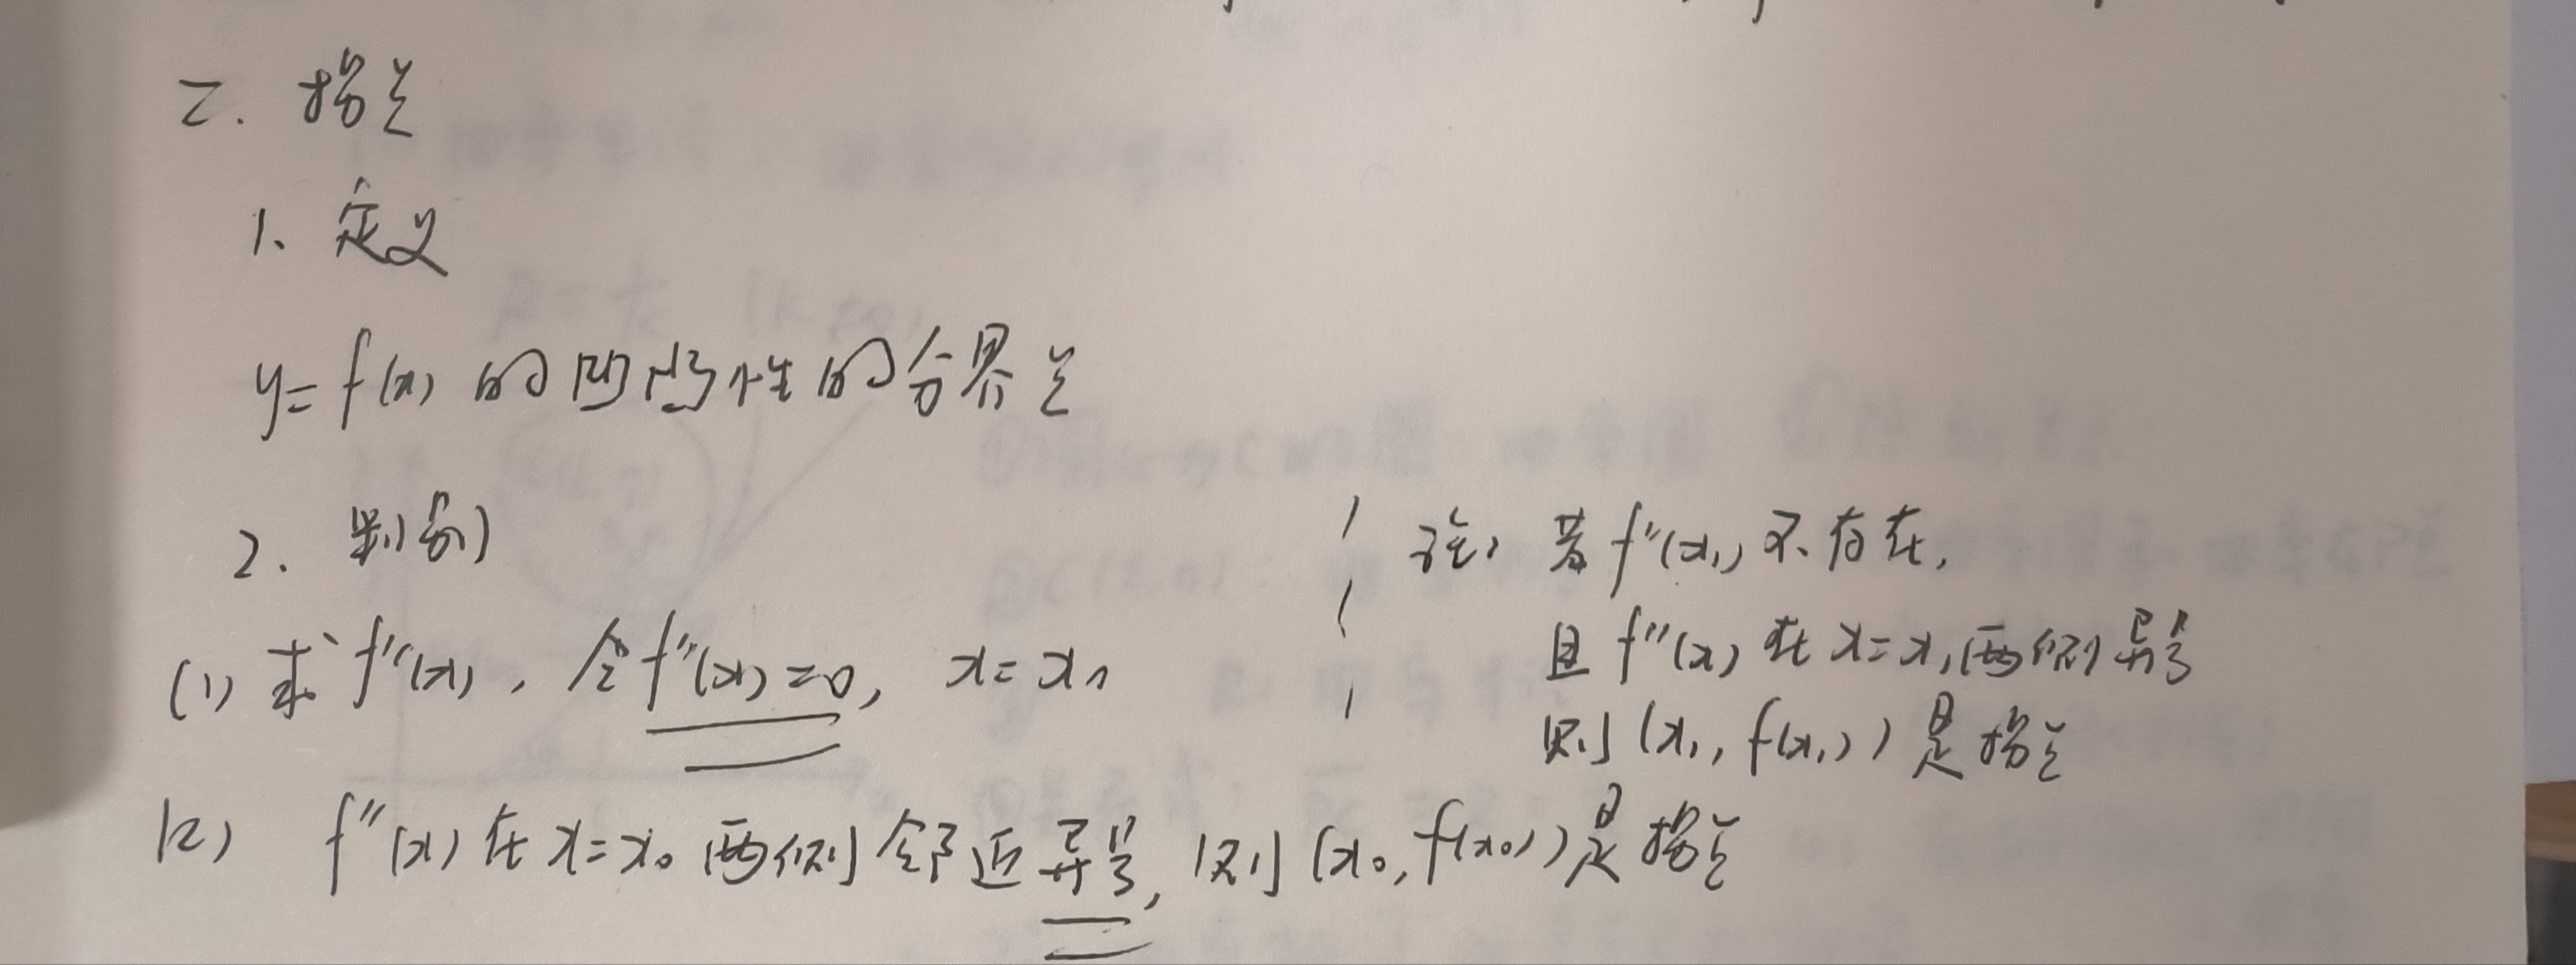 二. 拐点
1、定义
y=f(x) 的凹凸性的分界点
2. 判别
(1) 求f''(x), 令f''(x)=0, x=x₀
(2) f''(x)在x=x₀两侧邻近异号, 则(x₀,f(x₀))是拐点
注: 若f''(x₁)不存在,
且f''(x)在x=x₁两侧异号
则(x₁, f(x₁))是拐点